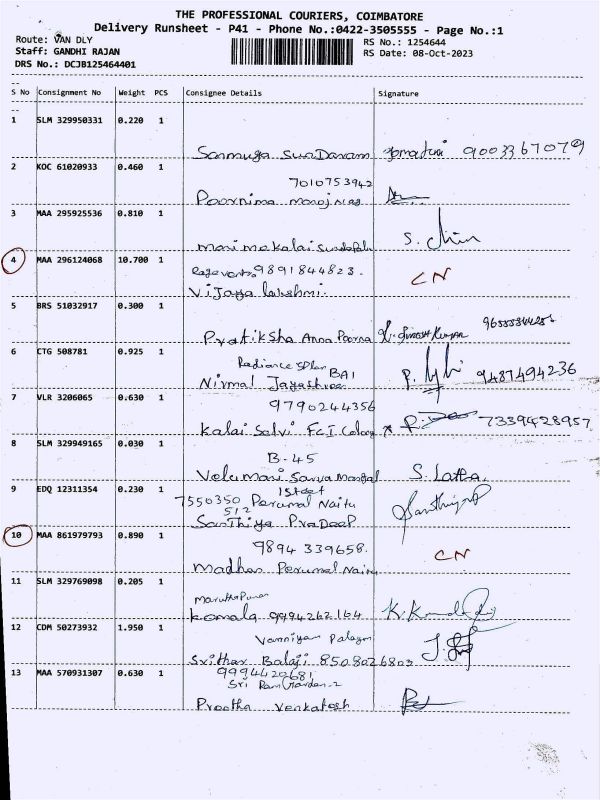 THE PROFESSIONAL COURIERS, COIMBATORE
Delivery Runsheet - P41 - Phone No.:0422-3505555 - Page No.:1
Route: VAN DLY
Staff: GANDHI RAJAN
DRS No.: DCJB125464401
RS No.: 1254644
RS Date: 08-Oct-2023
S No Consignment No Weight PCS Consignee Details Signature
1 SLM 329950331 0.220 1
Sanmuga SunDaram 9003367079
2 KOC 61020933 0.460 1
7010753942
Poornima Manoj
3 MAA 295925536 0.810 1
S.
4 MAA 296124068 10.700 1
9891844823. CN
Vijaya lakshmi.
5 BRS 51032917 0.300 1
Pratiksha Anna Poorna
6 CTG 508781 0.925 1
Radiance BAI
Nirmal Jayashree 9487494236
7 VLR 3206065 0.630 1
9790244356
Kalai Selvi FCI 7339428957
8 SLM 329949165 0.030 1
B-45
Velumani S. Latha.
9 EDQ 12311354 0.230 1
1 Street
7550350 Perumal
512
Santhiya PraDeep
10 MAA 861979793 0.890 1
9894 339658. CN
Madhan Perumal
11 SLM 329769098 0.205 1
Komala 9994262164
12 CDM 50273932 1.950 1
Vanniyan Palayam
Srithar Balaji 8508026803
13 MAA 570931307 0.630 1
9994420681
Sri Ram Garden-2
Preetha Venkatesh